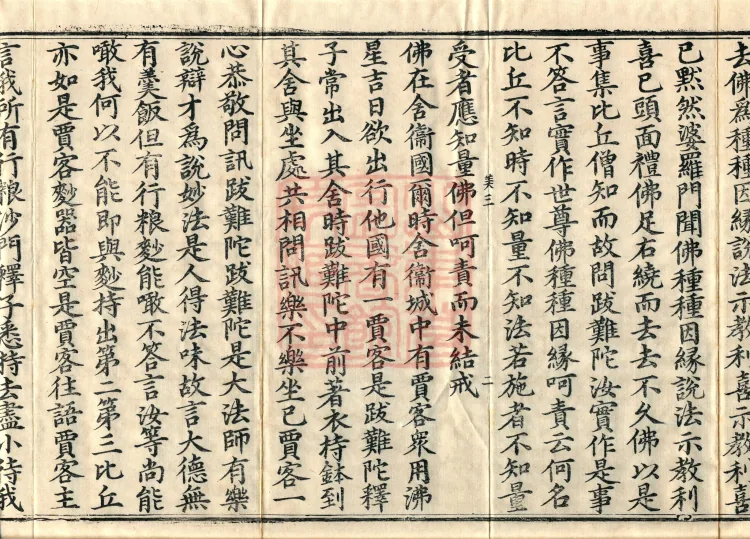 去佛爲種種因緣說法示教利喜示教利喜
已黙然婆羅門聞佛種種因緣說法示教利
喜已頭面禮佛足右繞而去去不久佛以是
事集比丘僧知而故問跋難陀汝實作是事
不答言實作世尊佛種種因緣呵責云何名
比丘不知時不知量不知法若施者不知量
美三
二
受者應知量佛但呵責而未結戒
佛在舍衞國爾時舍衞城中有賈客衆用沸
星吉日欲出行他國有一賈客是跋難陀釋
子常出入其舍時跋難陀中前著衣持鉢到
其舍與坐處共相問訊樂不樂坐已賈客一
心恭敬問訊跋難陀跋難陀是大法師有樂
說辯才爲說妙法是人得法味故言大德無
有羹飯但有行粮麨能噉不答言汝等尚能
噉我何以不能即與麨持出第二第三比丘
亦如是賈客麨器皆空是賈客往語賈客主
言我所有行粮沙門釋子悉持去盡小待我